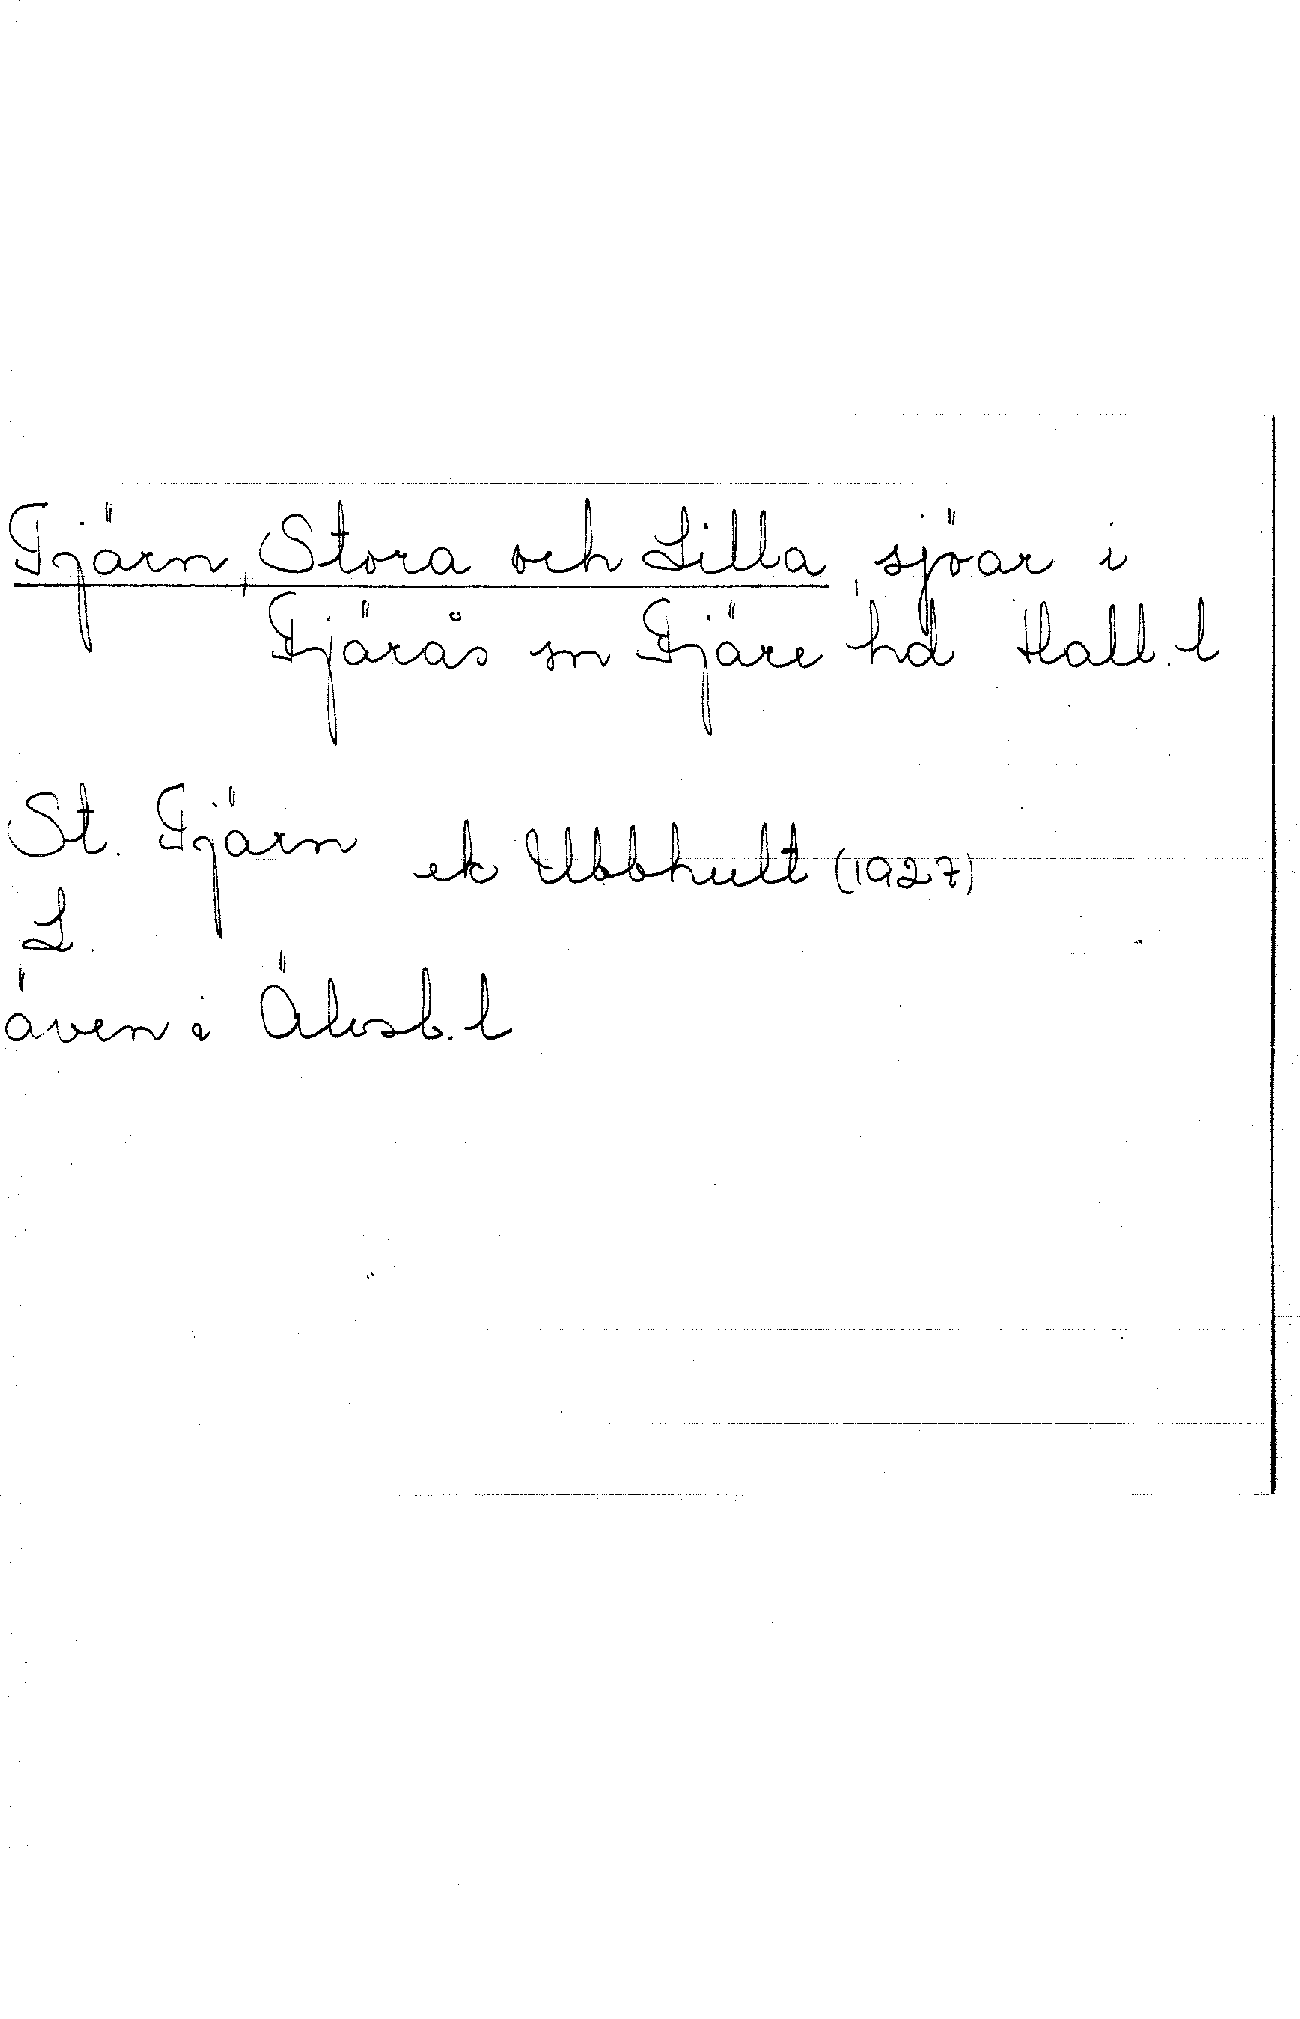 Fjärn, Stora och Lilla, sjöar i
Fjärås sn Fjäre hd Hall. l
St. Fjärn ek Ubbhult (1927)
L.
även i Älvsb. l